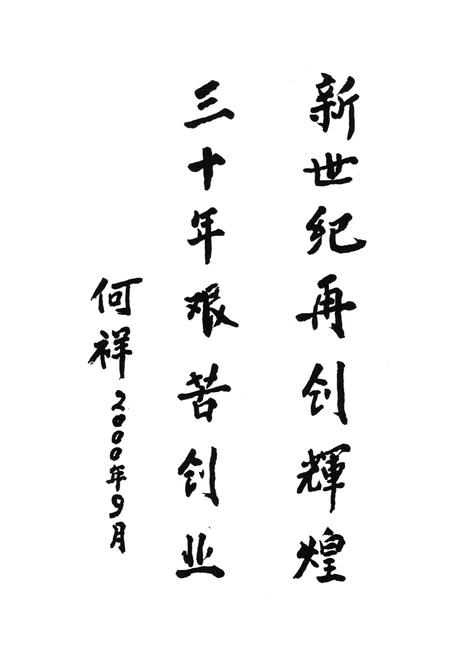 新世纪再创輝煌
三十年艰苦创业
何祥
2000年9月